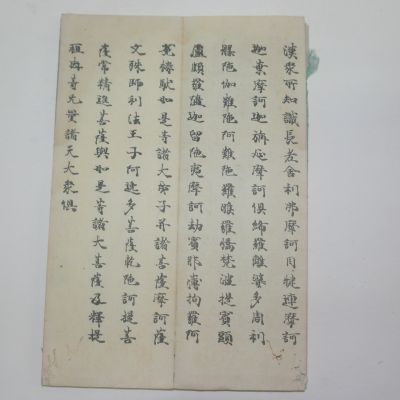 漢眾所知識長老舍利弗摩訶目犍連摩訶
迦葉摩訶迦旃延摩訶俱絺羅離婆多周利
槃陀伽難陀阿難陀羅睺羅憍梵波提賓頭
盧頗羅墮迦留陀夷摩訶劫賓那薄拘羅阿
㝹樓馱如是等諸大弟子并諸菩薩摩訶薩
文殊師利法王子阿逸多菩薩乾陀訶提菩
薩常精進菩薩與如是等諸大菩薩及釋提
桓因等无量諸天大眾俱